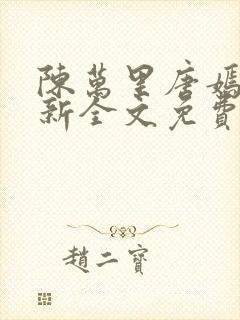 陳萬里唐嫣
新全文免費
趙二寶